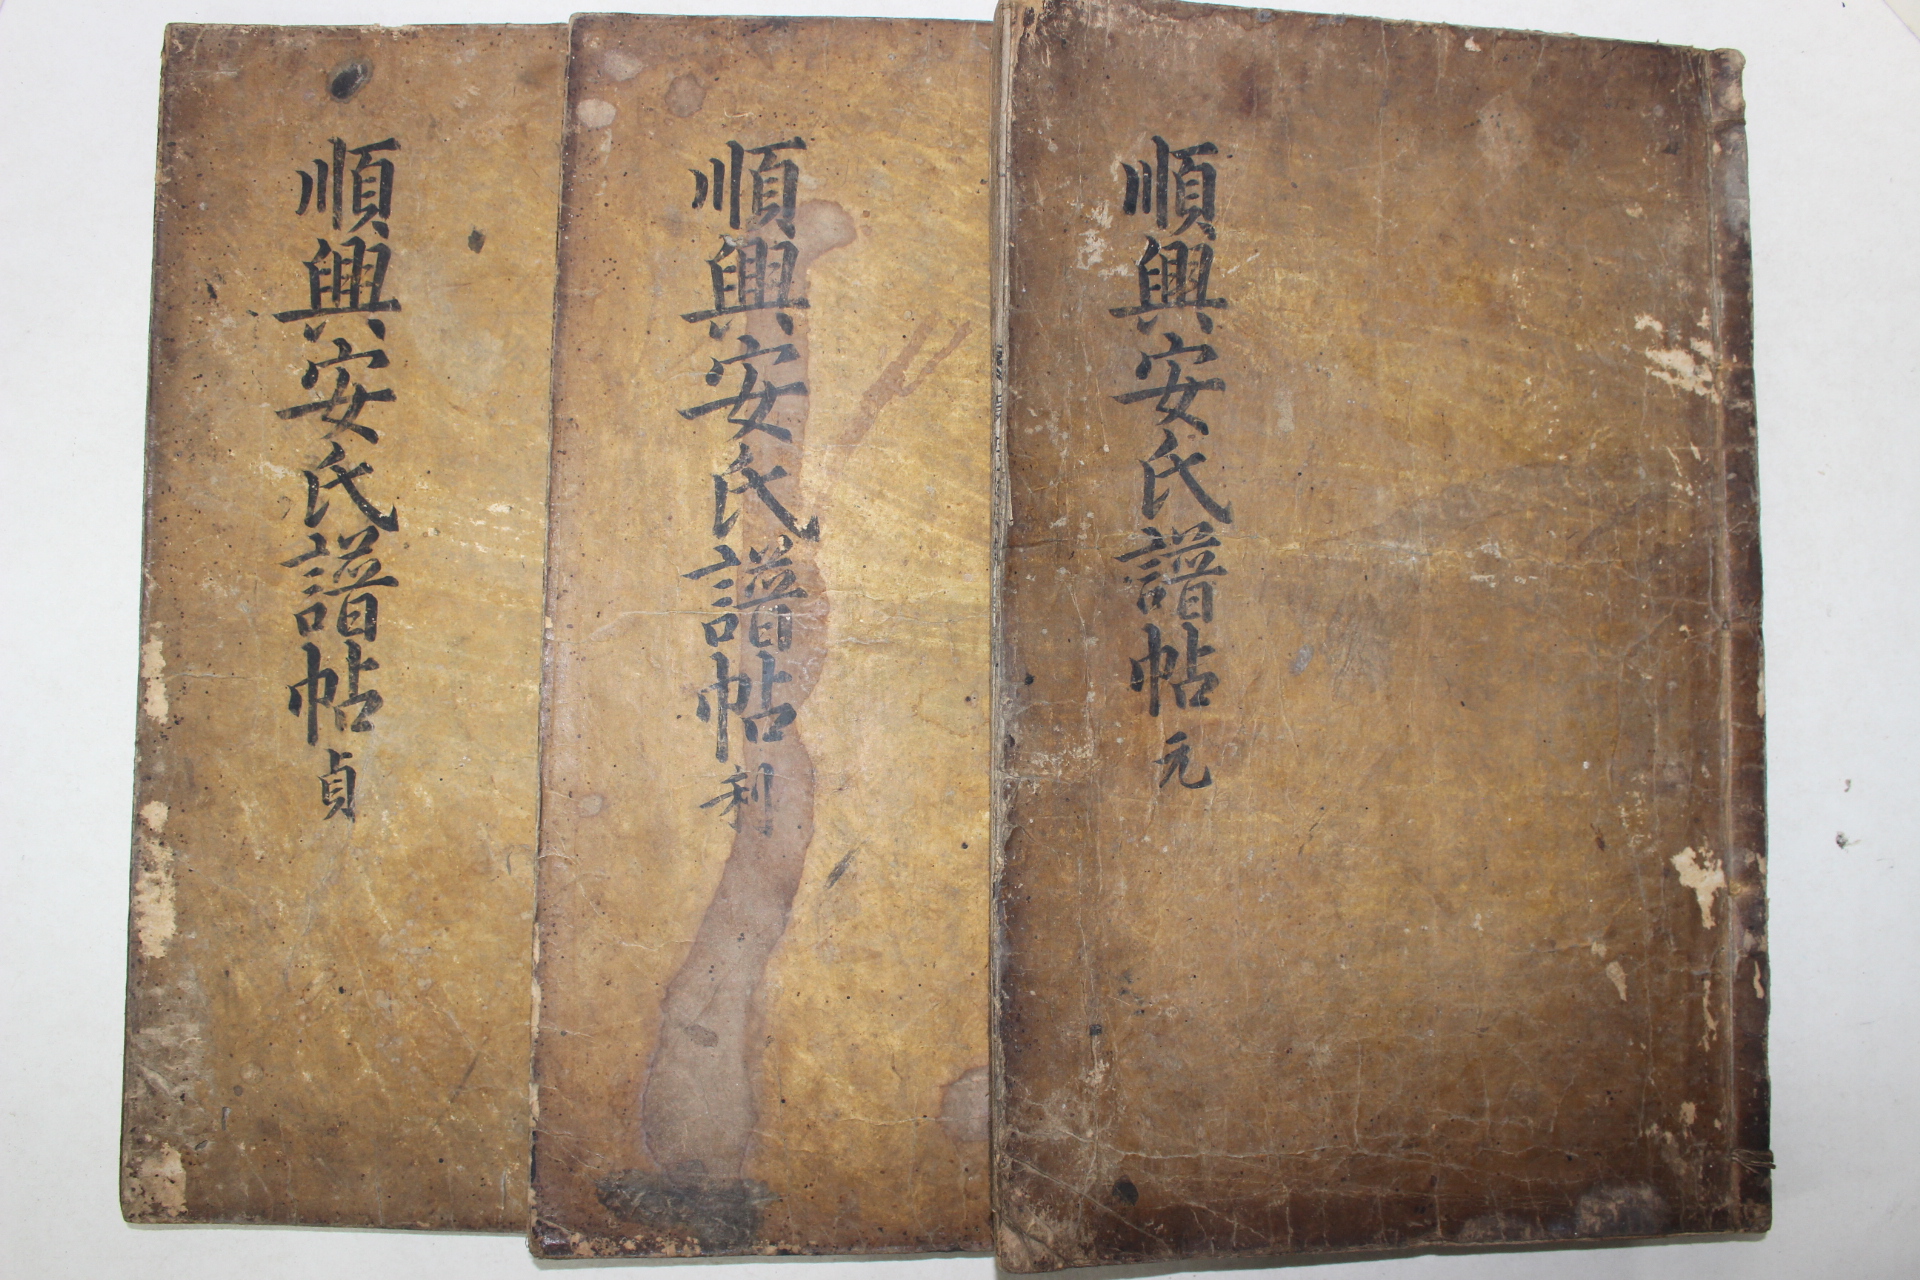 順興安氏譜帖 元
順興安氏譜帖 利
順興安氏譜帖 貞